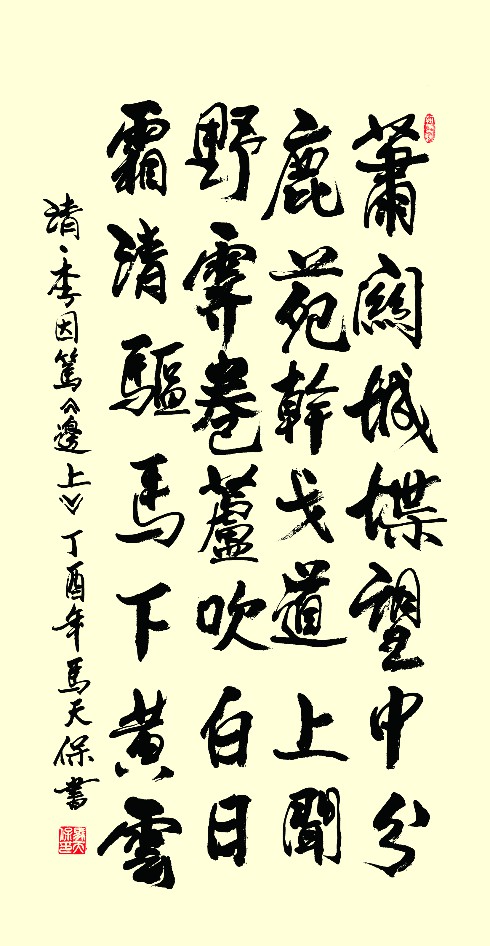 蕭關城堞望中分
鹿苑幹戈道上聞
野霽卷蘆吹白日
霜清驅馬下黃雲
清·李因篤《邊上》丁酉年馬天保書